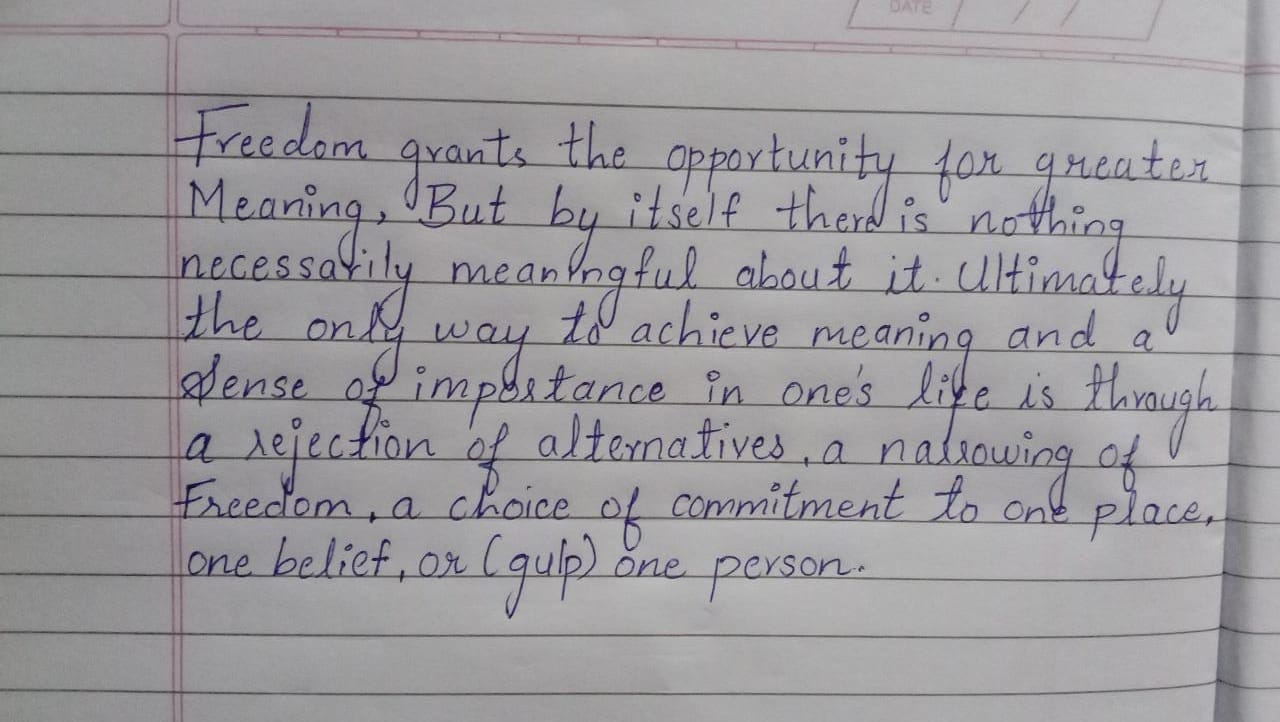 DATE / / /
Freedom grants the opportunity for greater
Meaning, But by itself there is nothing
necessarily meaningful about it. Ultimately
the only way to achieve meaning and a
sense of importance in one's life is through
a rejection of alternatives, a narrowing of
Freedom, a choice of commitment to one place,
one belief, or (gulp) one person.